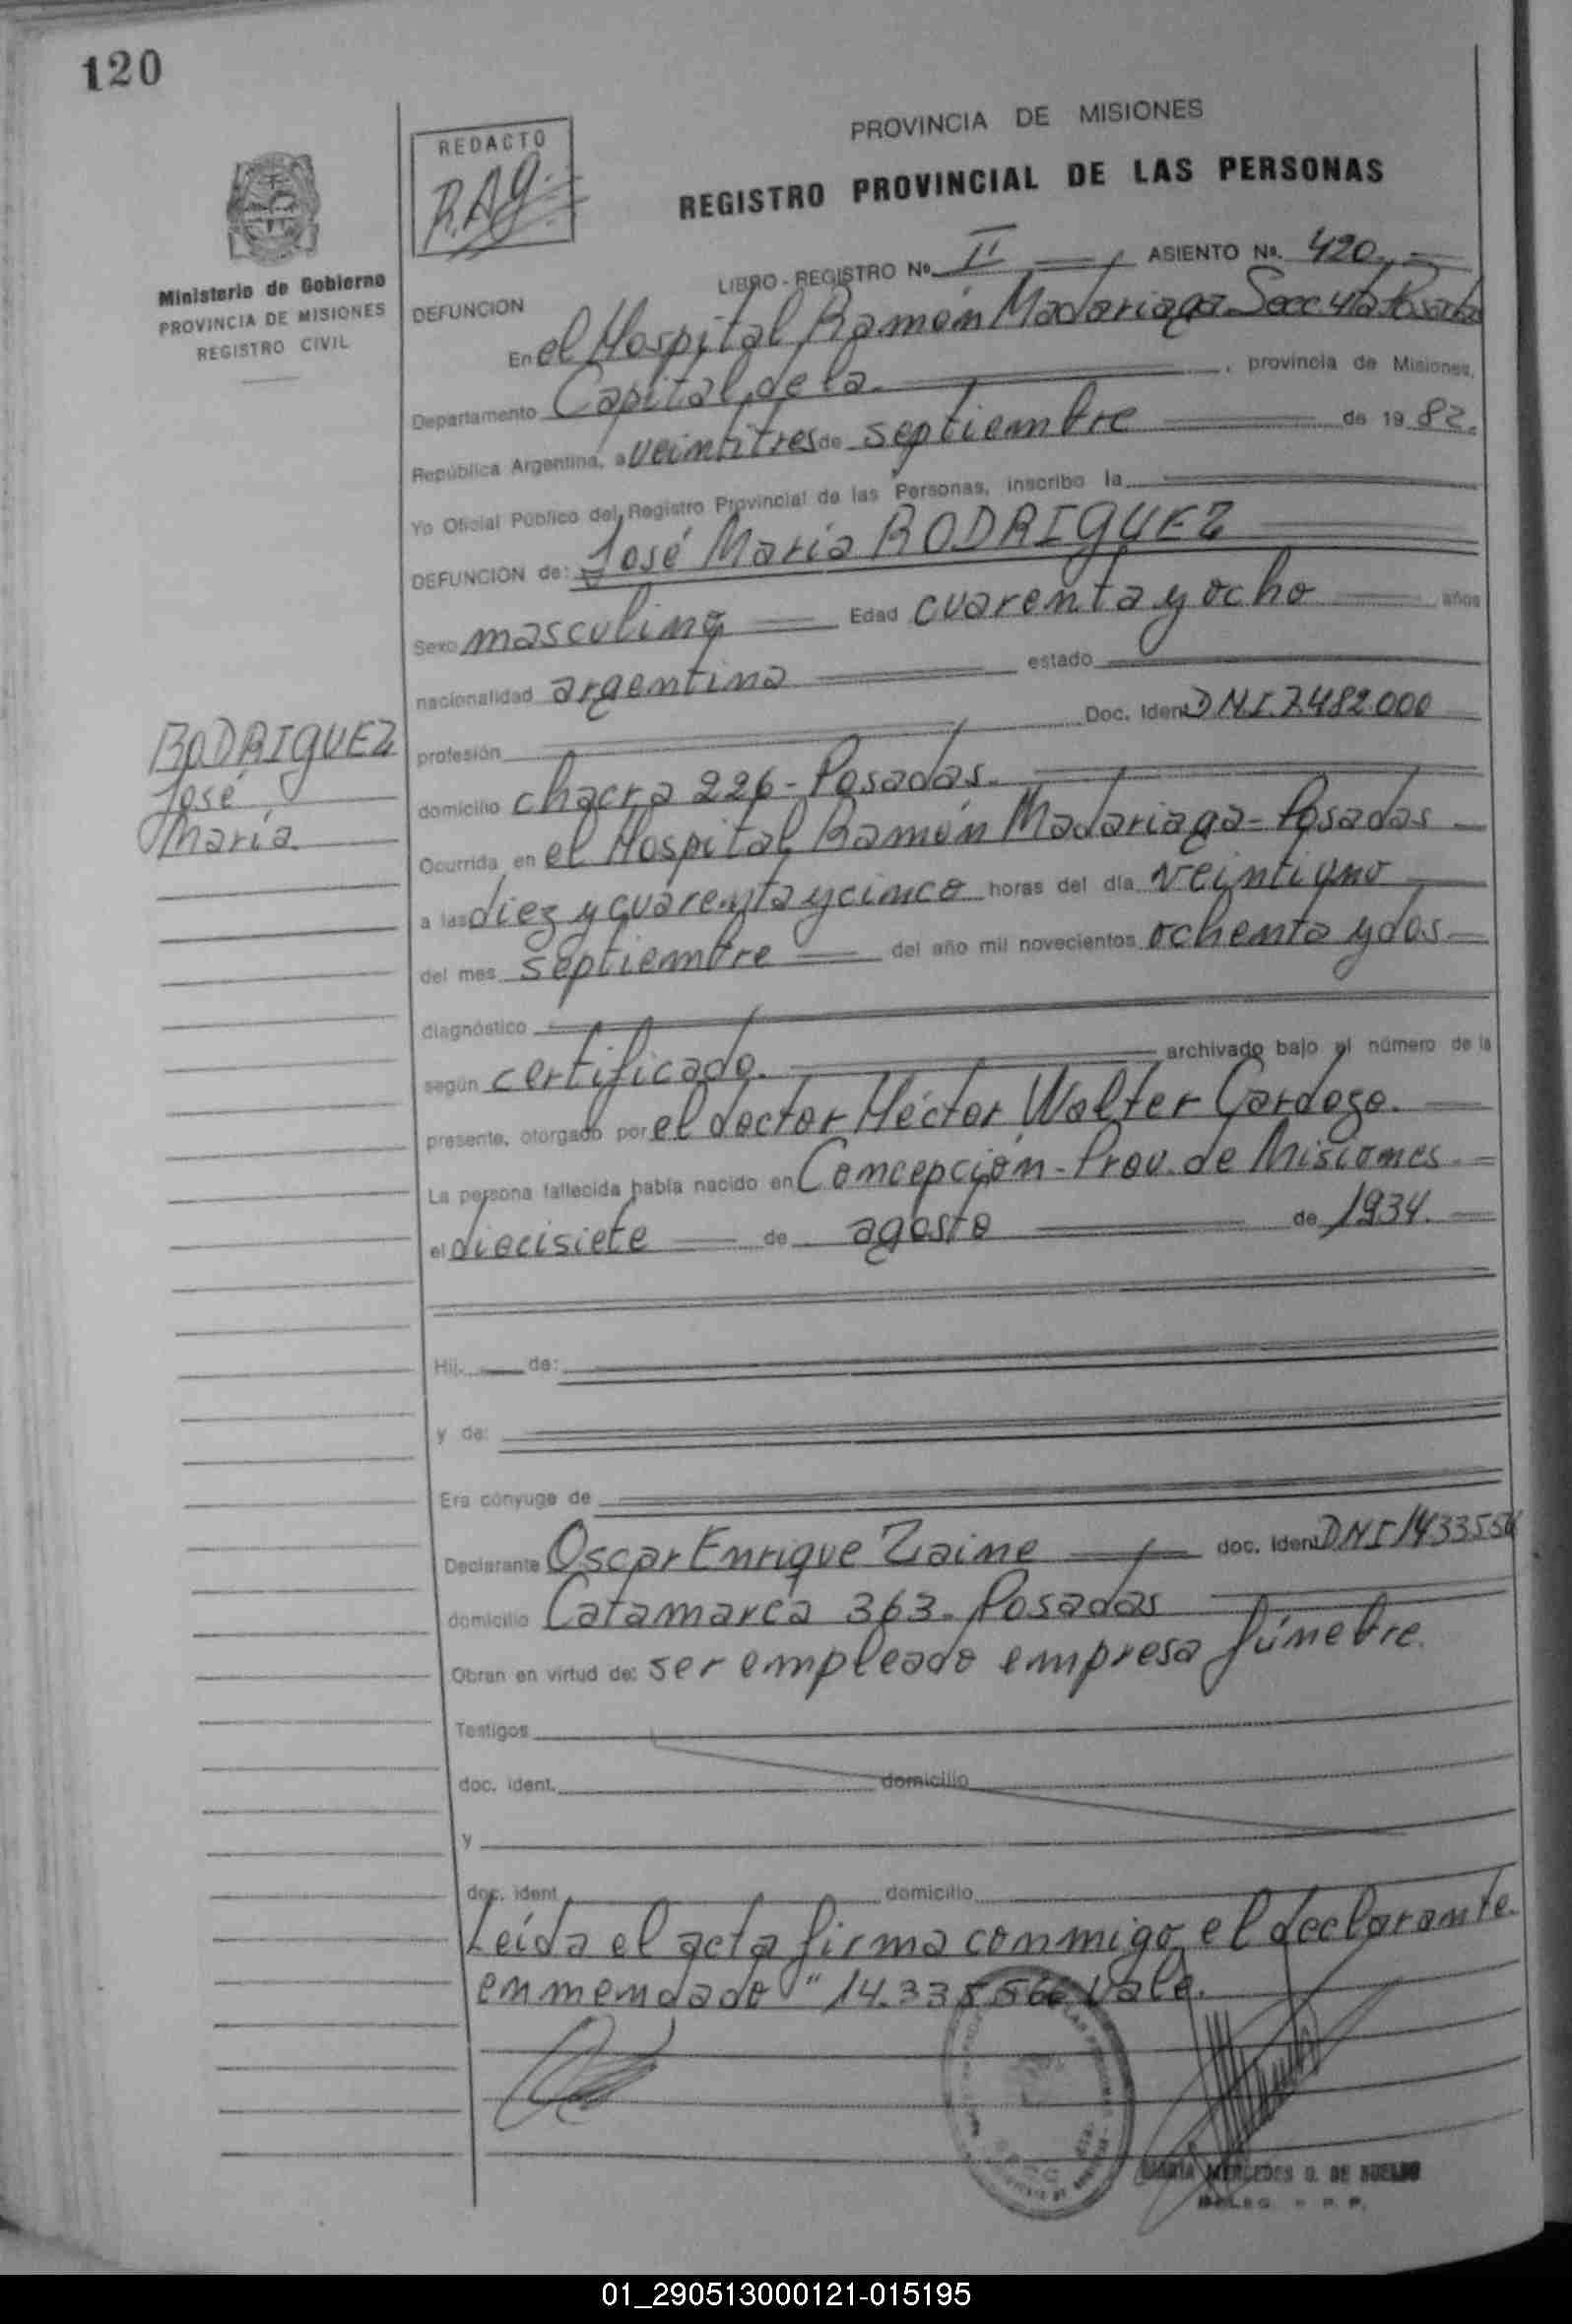 120
REDACTO
R.A.g.
PROVINCIA DE MISIONES
REGISTRO PROVINCIAL DE LAS PERSONAS
Ministerio de Gobierno
PROVINCIA DE MISIONES
REGISTRO CIVIL
LIBRO - REGISTRO Nº II ASIENTO Nº. 420.
DEFUNCION
En el Hospital Ramón Madariaga Secc. 4ta Posadas
Departamento Capital de la. , provincia de Misiones,
República Argentina, a veintitres de septiembre de 19 82.
Yo Oficial Público del Registro Provincial de las Personas, inscribo la
DEFUNCION de: José María RODRIGUEZ
Sexo masculino Edad cuarenta y ocho años
nacionalidad argentina estado
profesión Doc. Ident. DNI. 7.482.000
RODRIGUEZ
José
María
domicilio chacra 226 - Posadas.
Ocurrida en el Hospital Ramón Madariaga - Posadas
a las diez y cuarenta y cinco horas del día veintiuno
del mes septiembre del año mil novecientos ochenta y dos
diagnóstico
según certificado. archivado bajo el número de la
presente, otorgado por el doctor Héctor Walter Cardozo.
La persona fallecida había nacido en Concepción - Prov. de Misiones
el diecisiete de agosto de 1934.
Hij de:
y de:
Era cónyuge de
Declarante Oscar Enrique Zaine doc. Ident. DNI
domicilio Catamarca 363. Posadas
Obran en virtud de: ser empleado empresa fúnebre.
Testigos
doc. ident. domicilio
y
doc. ident. domicilio
Leída el acta firma conmigo el declarante.
enmendado " Vale.
MARIA MERCEDES G. DE
DELEG. R. P. P.
01_290513000121-015195